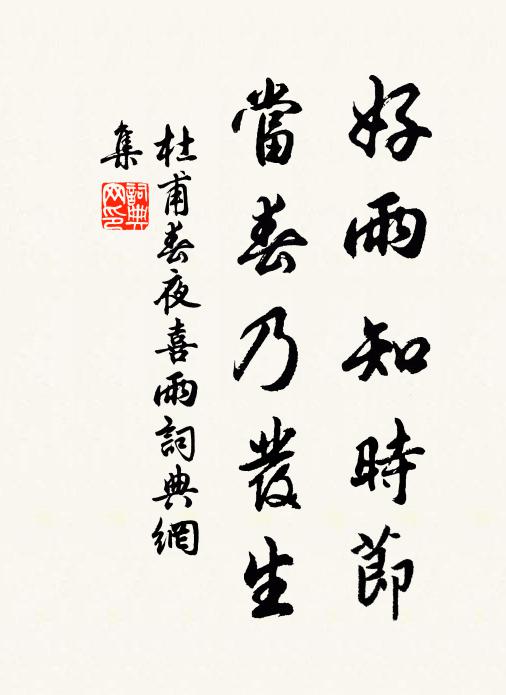 好雨知時節
當春乃發生
杜甫春夜喜雨詞典網
集
詞典
网印